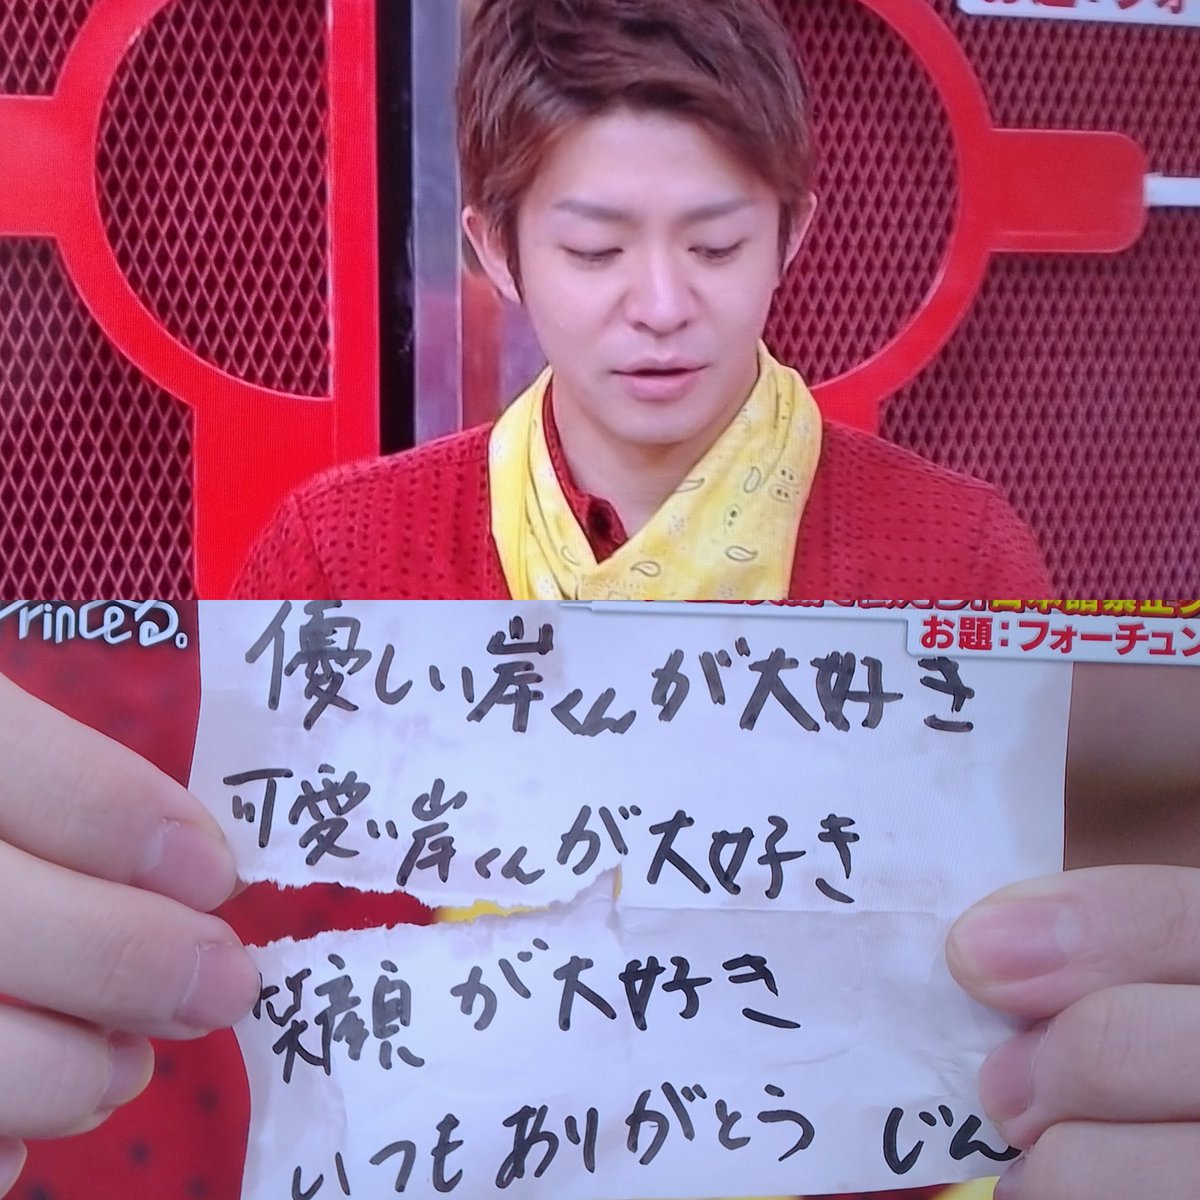 お題：フォ
Princeる。
日本語禁止
お題：フォーチュン
優しい岸くんが大好き
可愛い岸くんが大好き
笑顔が大好き
いつもありがとう じん